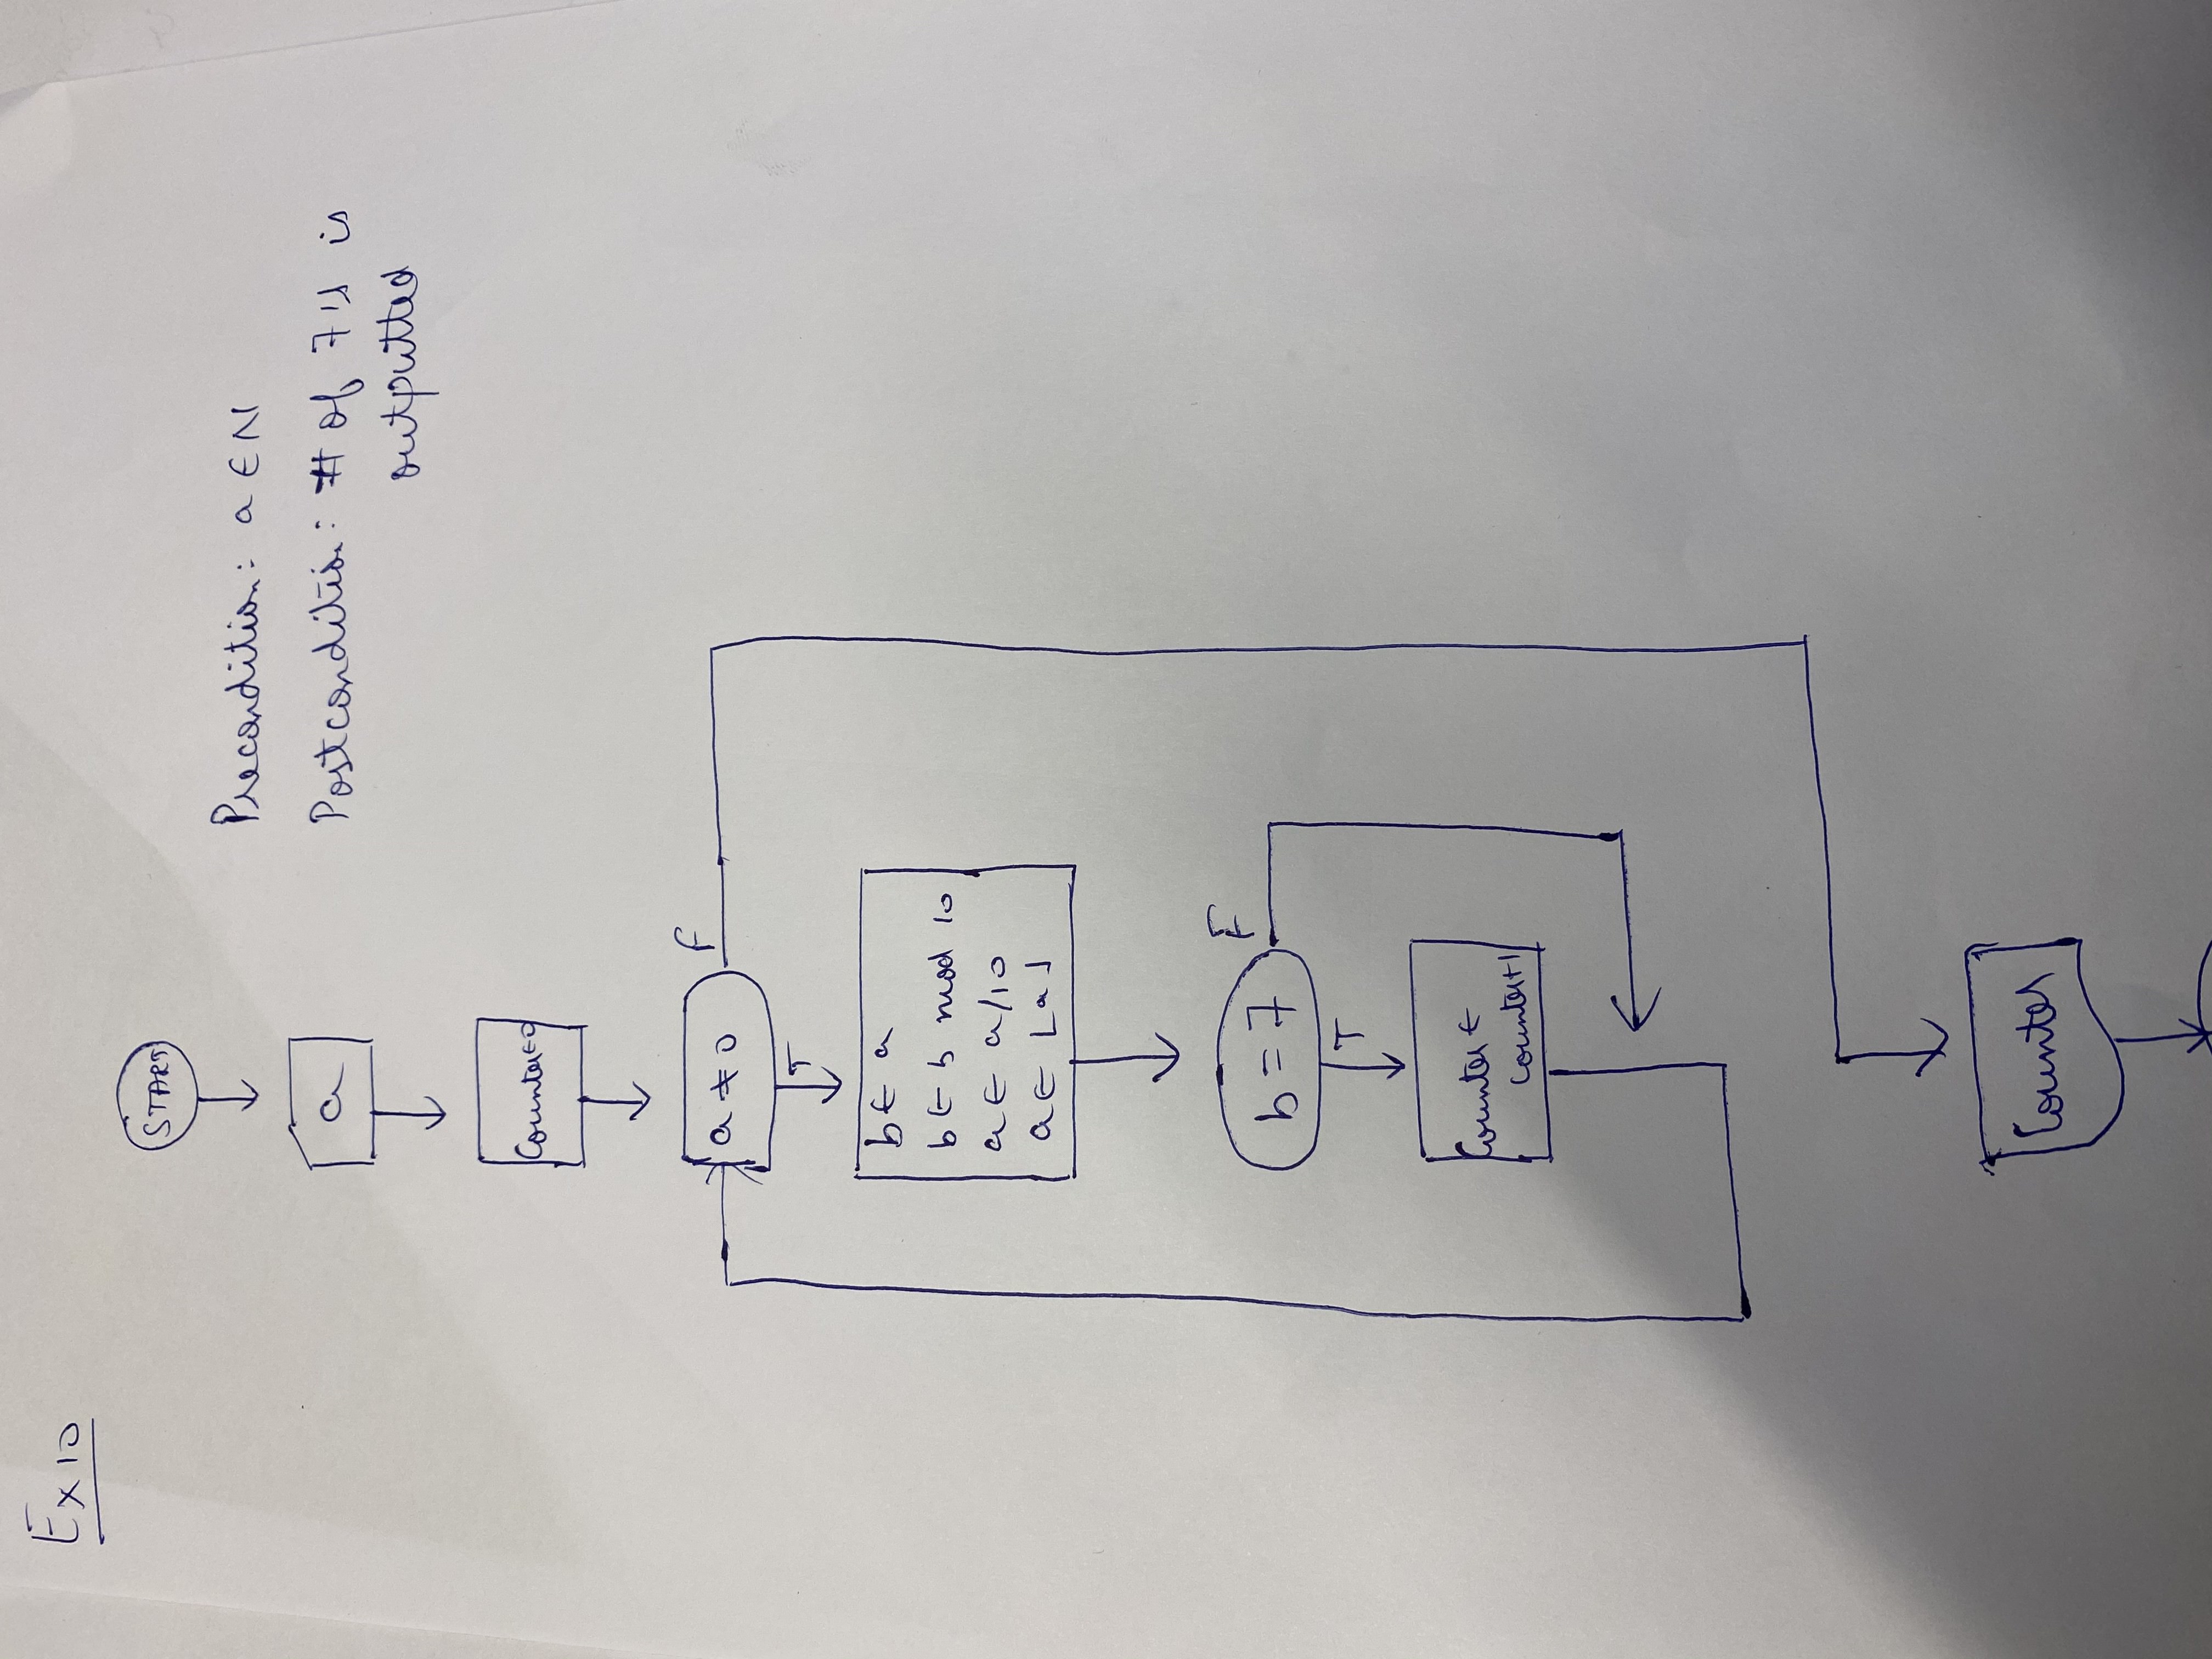 Ex 10
START
Precondition: a ∈ N
a
Postcondition: # of 7's is
outputted
Counter←0
a ≠ 0
F
T
b ← a
b ← b mod 10
a ← a/10
a ← ⌊a⌋
b = 7
F
T
Counter ←
counter+1
Counter